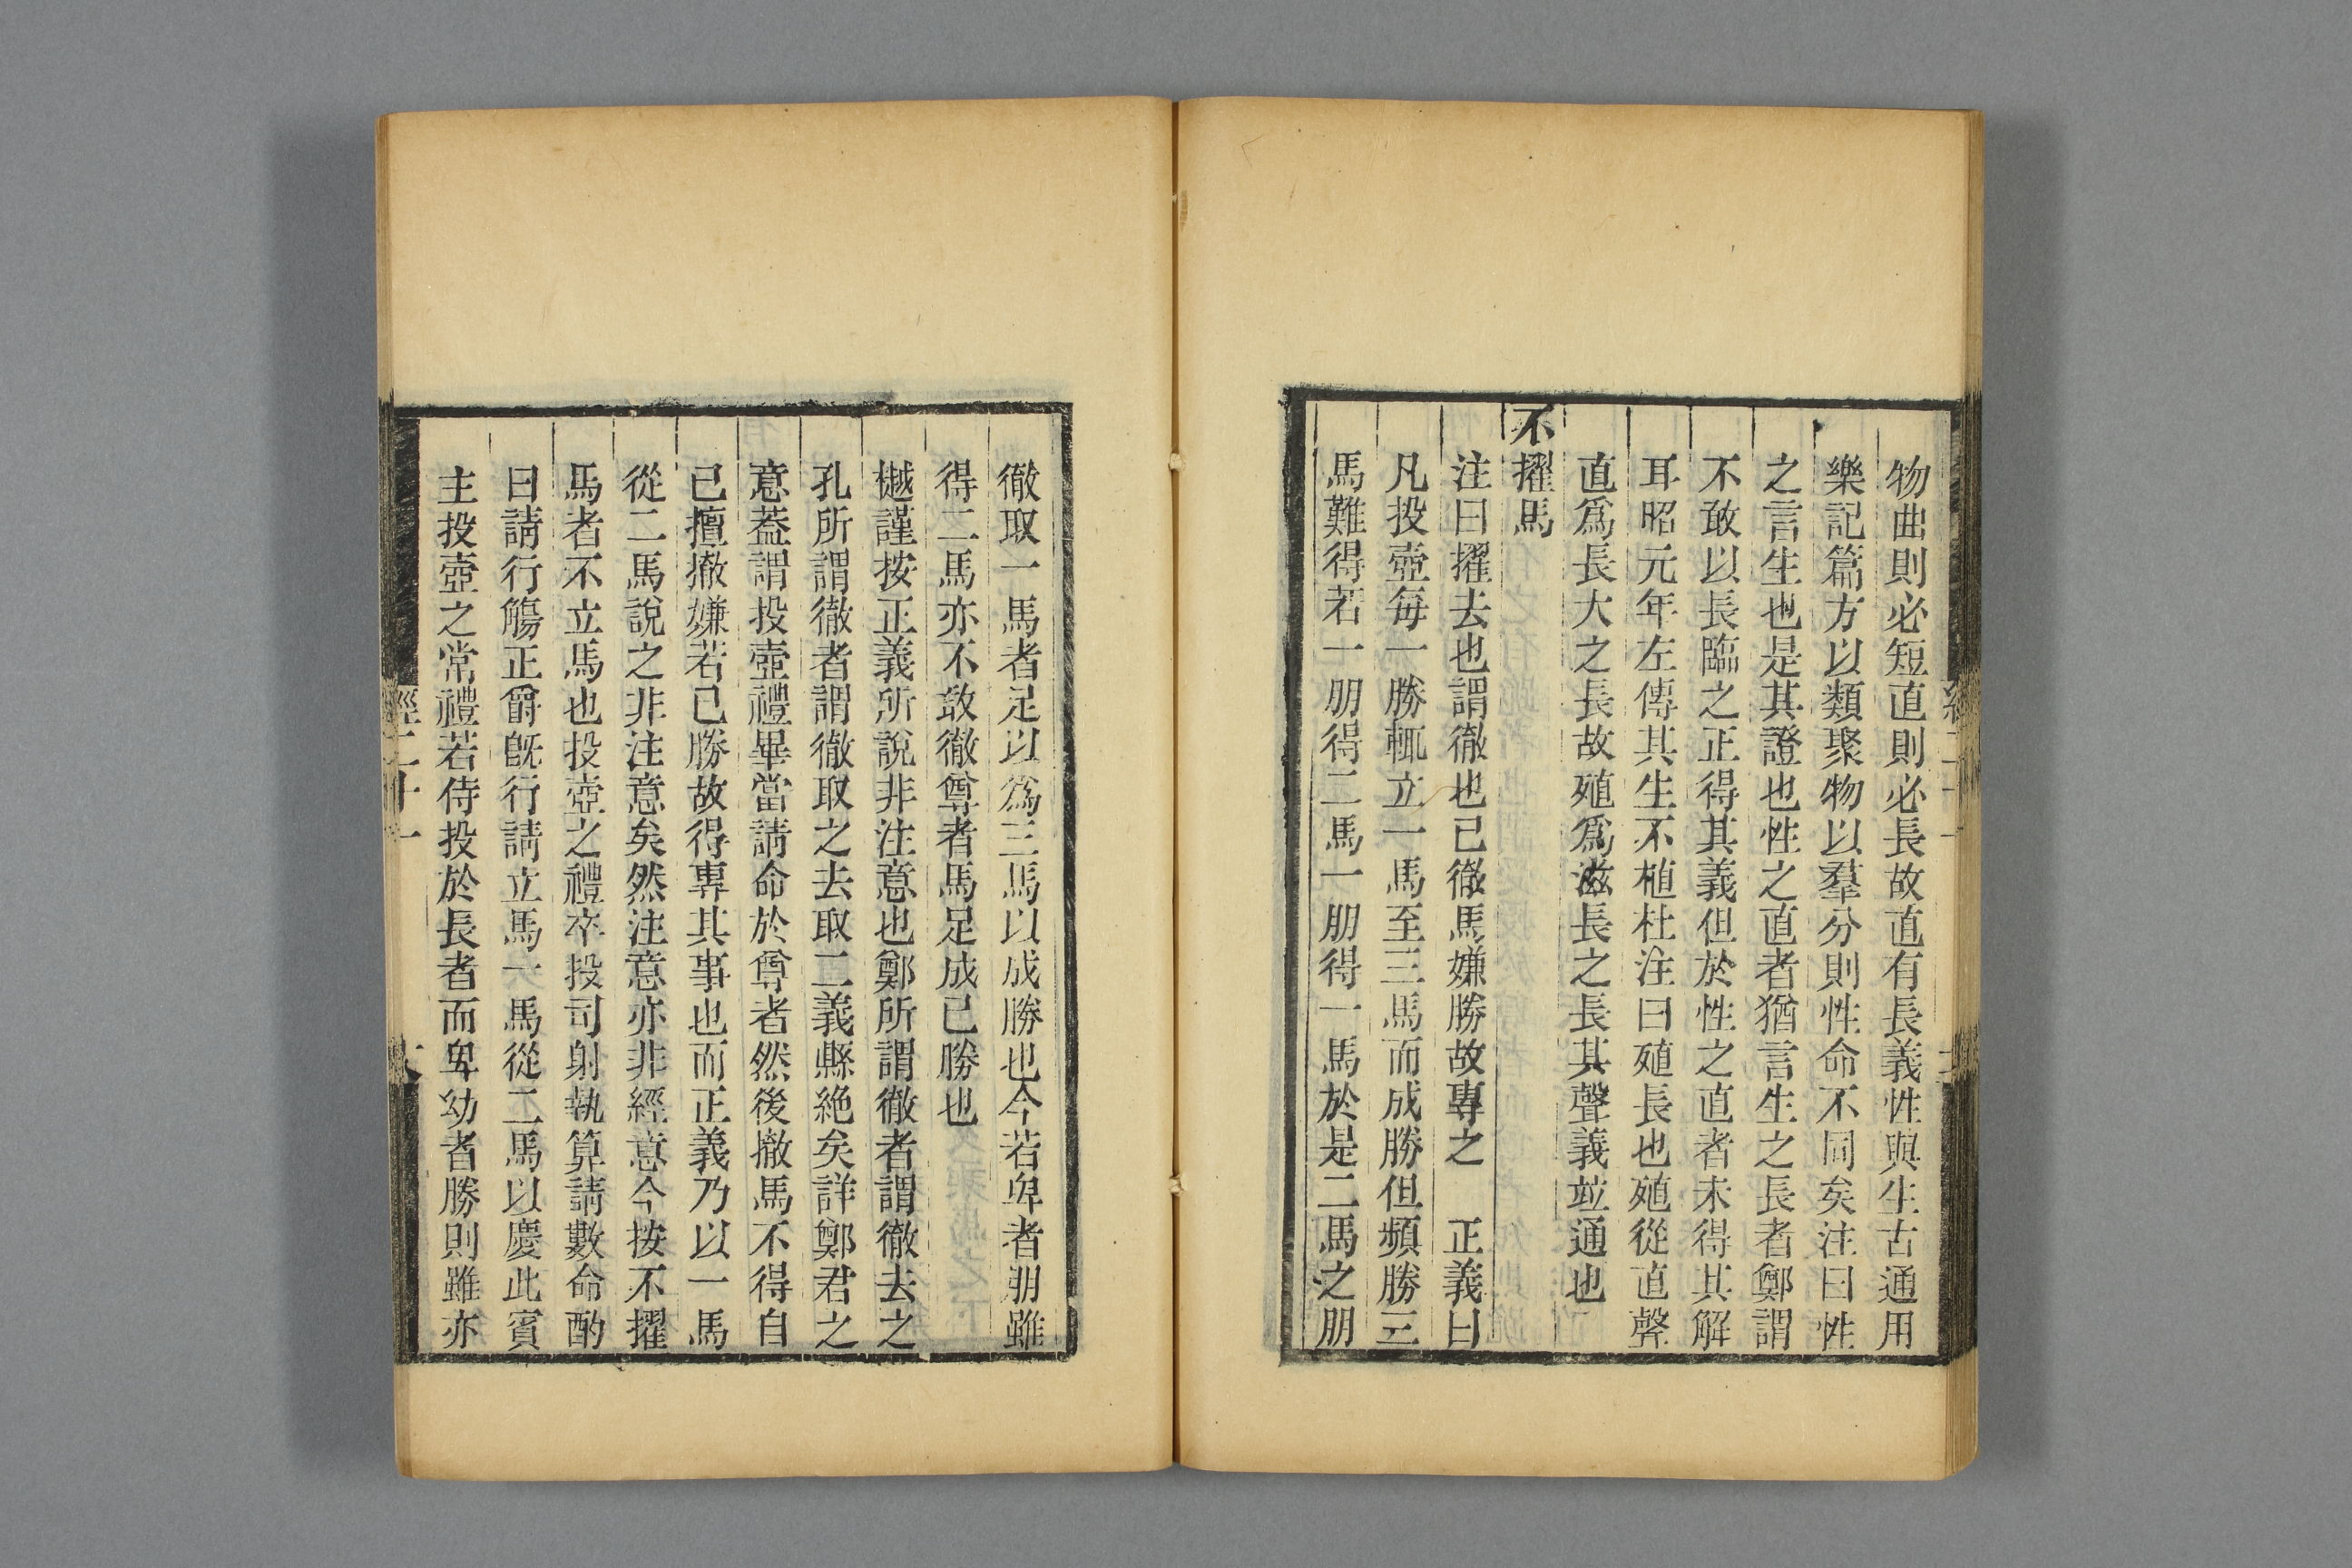 物曲則必短直則必長故直有長義性與生古通用
樂記篇方以類聚物以羣分則性命不同矣注曰性
之言生也是其證也性之直者猶言生之長者鄭謂
不敢以長臨之正得其義但於性之直者未得其解
耳昭元年左傳其生不植杜注曰殖長也殖從直聲
直爲長大之長故殖爲滋長之長其聲義竝通也
不擢馬
注曰擢去也謂徹也已徹馬嫌勝故專之　正義曰
凡投壺每一勝輒立一馬至三馬而成勝但頻勝三
馬難得若一朋得二馬一朋得一馬於是二馬之朋
徹取一馬者足以爲三馬以成勝也今若卑者朋雖
得二馬亦不敢徹尊者馬足成已勝也
樾謹按正義所說非注意也鄭所謂徹者謂徹去之
孔所謂徹者謂徹取之去取二義縣絶矣詳鄭君之
意葢謂投壺禮畢當請命於尊者然後撤馬不得自
已擅撤嫌若已勝故得專其事也而正義乃以一馬
從二馬說之非注意矣然注意亦非經意今按不擢
馬者不立馬也投壺之禮卒投司射執算請數命酌
曰請行觴正爵旣行請立馬一馬從二馬以慶此賓
主投壺之常禮若侍投於長者而卑幼者勝則雖亦
經二十一